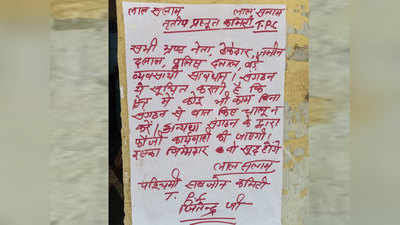 लाल सलाम लाल सलाम
तृतीय प्रस्तुत कमिटी T.PC
सभी भ्रष्ट नेता, ठेकेदार, जमीन
दलाल, पुलिस दलाल, बड़े
व्यवसायी सावधान। संगठन
ये सूचित करता है कि
क्षेत्र में कोई भी काम बिना
संगठन से बात किए चालू न
करें। अन्यथा संगठन के द्वारा
फौजी कार्यवाही की जाएगी।
इसका जिम्मेदार वो खुद होंगे
लाल सलाम
पश्चिमी सब जोन कमिटी
T. P.C
जितेन्द्र जी